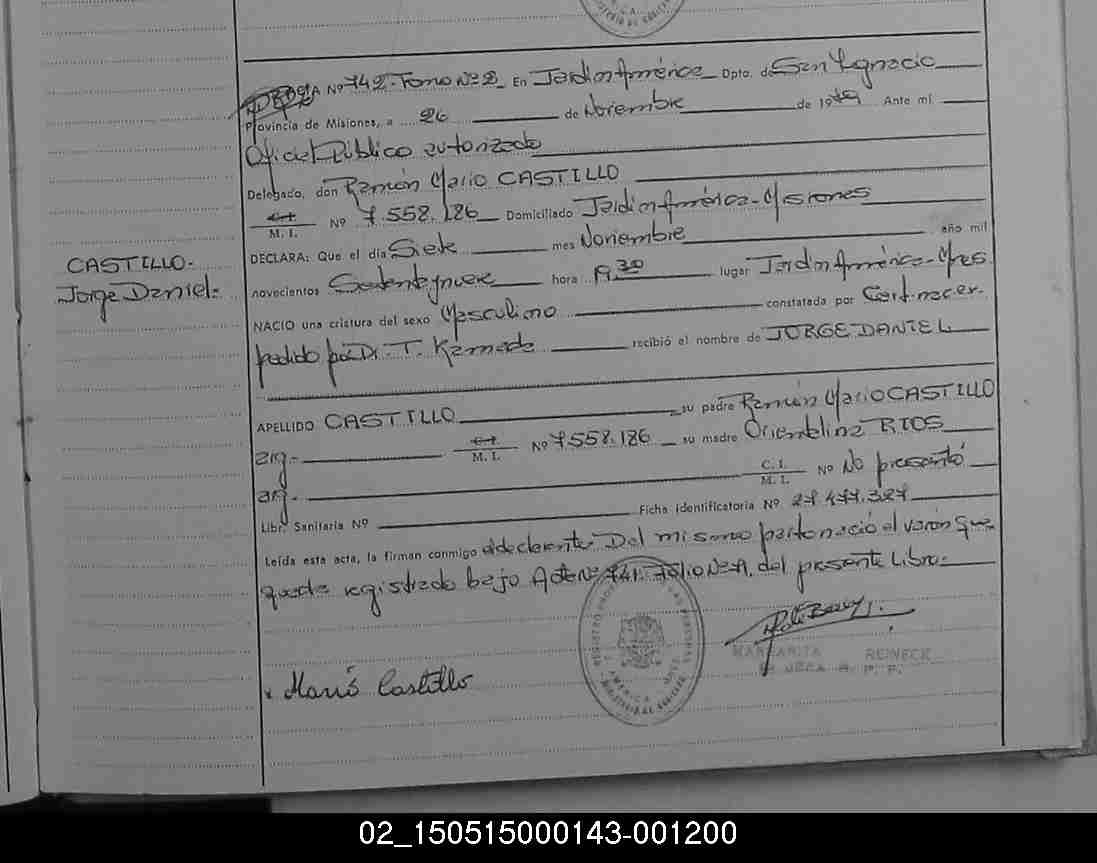 A Nº 742. Tomo Nº 2 En Jardín América Dpto. de San Ygnacio
Provincia de Misiones, a 26 de Noviembre de 1979 Ante mí
Oficial Público autorizado
Delegado, don Ramón Mario CASTILLO
C.I. / M. I. Nº 7.558.186 Domiciliado Jardín América - Misiones
DECLARA: Que el día Siete mes Noviembre año mil
CASTILLO-
Jorge Daniel-
novecientos Setenta y nueve hora 19.30 lugar Jardín América - Mnes.
NACIO una criatura del sexo Masculino constatada por Cert. nacer
pedido por Dr. T. Kamada recibió el nombre de JORGE DANIEL
APELLIDO CASTILLO su padre Ramón Mario CASTILLO
arg.- C.I. / M. I. Nº 7.558.186 su madre Orientalina RIOS
arg.- C. I. / M. I. Nº No presentó
Libr. Sanitaria Nº Ficha Identificatoria Nº 27.477.327
Leída esta acta, la firman conmigo el declarante. Del mismo parto nació el varón que
queda registrado bajo Acta Nº 741. Folio Nº del presente Libro.-
MARGARITA REINECK
Mario Castillo